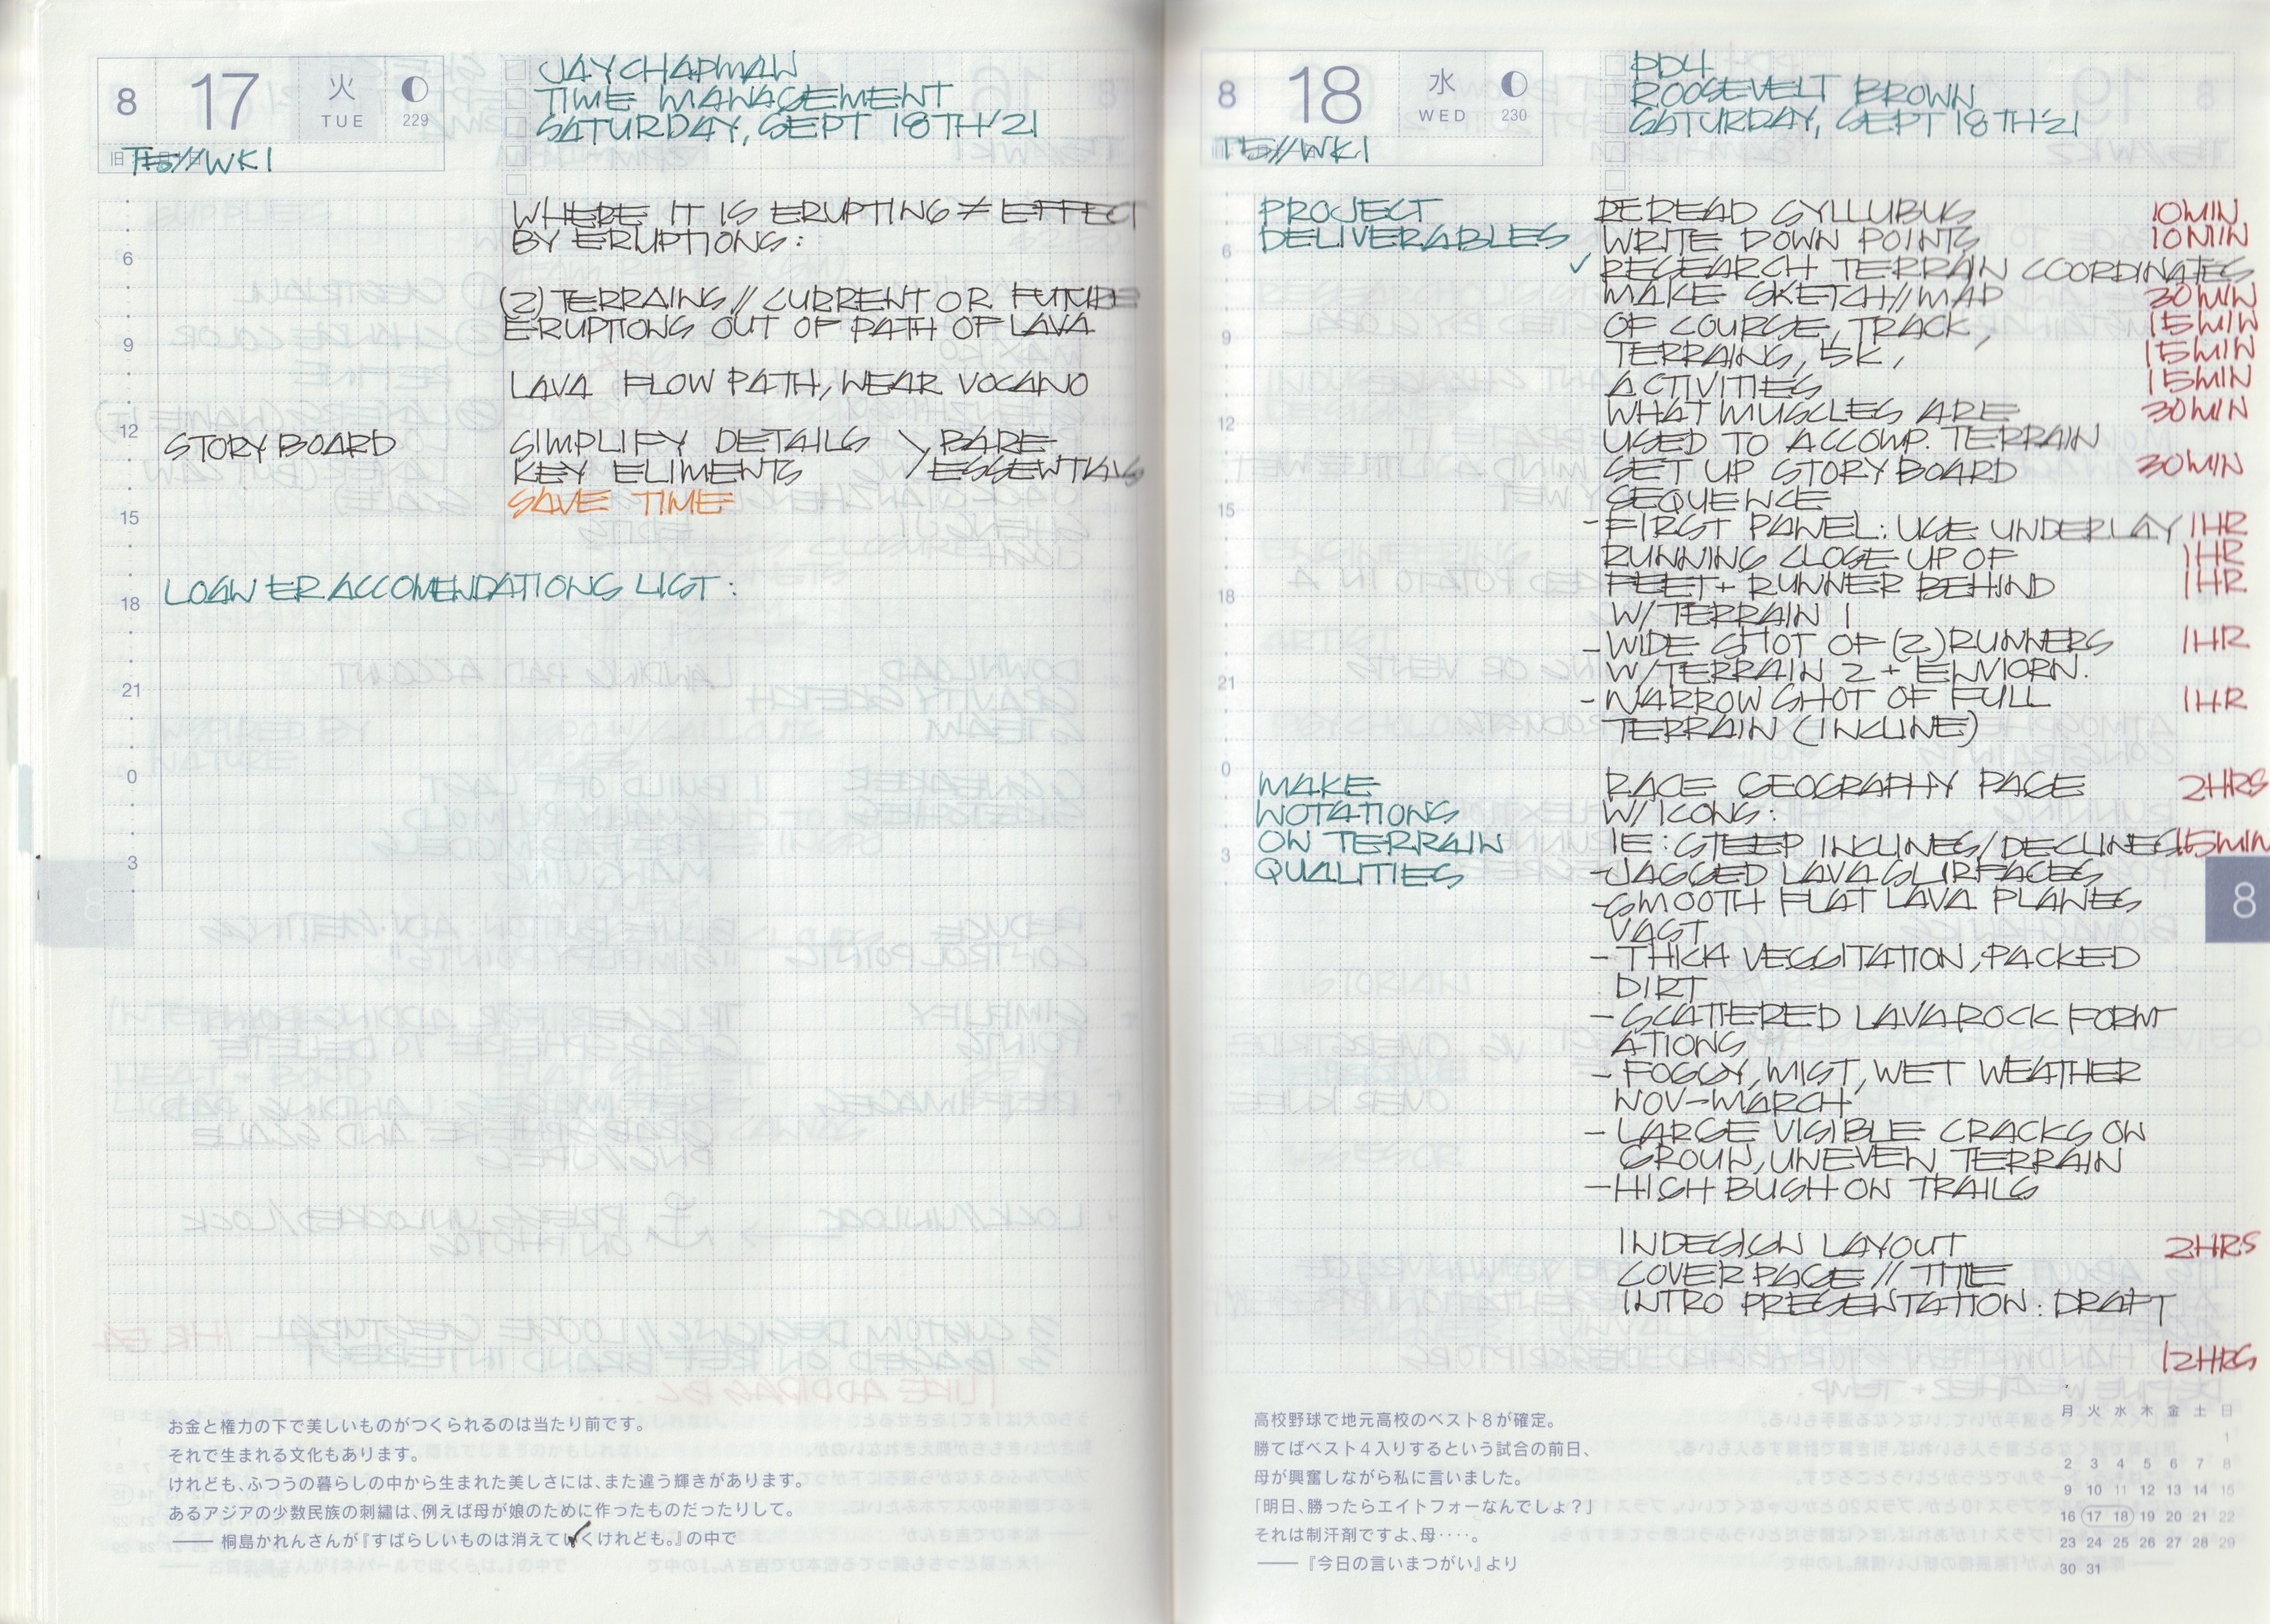 8 17 火 TUE 229
JAY CHAPMAN
TIME MANAGEMENT
SATURDAY, SEPT 18TH '21
T5//WK1
WHERE IT IS ERUPTING ≠ EFFECT
BY ERUPTIONS:
6
(2) TERRAINS // CURRENT OR FUTURE
ERUPTIONS OUT OF PATH OF LAVA
9
LAVA FLOW PATH, NEAR VOCANO
12
STORY BOARD
SIMPLIFY DETAILS \ BARE
KEY ELIMENTS / ESSENTIALS
SAVE TIME
15
LOAN ER ACCOMENDATIONS LIST:
18
21
0
3
8
お金と権力の下で美しいものがつくられるのは当たり前です。
それで生まれる文化もあります。
けれども、ふつうの暮らしの中から生まれた美しさには、また違う輝きがあります。
あるアジアの少数民族の刺繡は、例えば母が娘のために作ったものだったりして。
── 桐島かれんさんが『すばらしいものは消えていくけれども。』の中で
8 18 水 WED 230
PD4
ROOSEVELT BROWN
SATURDAY, SEPT 18TH '21
T5//WK1
PROJECT
DELIVERABLES
REREAD SYLLUBUS 10MIN
WRITE DOWN POINTS 10MIN
6
✓ RESEARCH TERRAIN COORDINATES
MAKE SKETCH//MAP 30MIN
OF COURSE, TRACK, 15MIN
9
TERRAINS, 5K, 15MIN
ACTIVITIES 15MIN
WHAT MUSCLES ARE 30MIN
12
USED TO ACCOMP. TERRAIN
SET UP STORY BOARD 30MIN
SEQUENCE
15
- FIRST PANEL: USE UNDERLAY 1HR
RUNNING CLOSE UP OF 1HR
FEET + RUNNER BEHIND 1HR
18
W/ TERRAIN 1
- WIDE SHOT OF (2) RUNNERS 1HR
W/ TERRAIN 2 + ENVIORN.
21
- NARROW SHOT OF FULL 1HR
TERRAIN (INCLINE)
0
MAKE
NOTATIONS
ON TERRAIN
QUALITIES
RACE GEOGRAPHY PAGE 2HRS
W/ ICONS:
IE: STEEP INCLINES/DECLINES 15MIN
3
- JAGGED LAVA SURFACES
- SMOOTH FLAT LAVA PLANES
VAST
8
- THICK VEGGITATION, PACKED
DIRT
- SCATTERED LAVA ROCK FORM
ATIONS
- FOGGY, MIST, WET WEATHER
NOV-MARCH
- LARGE VISIBLE CRACKS ON
GROUN, UNEVEN TERRAIN
- HIGH BUSH ON TRAILS
INDESIGN LAYOUT 2HRS
COVER PAGE // TITLE
INTRO PRESENTATION: DRAFT
12HRS
高校野球で地元高校のベスト8が確定。
勝てばベスト4入りするという試合の前日、
母が興奮しながら私に言いました。
「明日、勝ったらエイトフォーなんでしょ？」
それは制汗剤ですよ、母‥‥。
── 『今日の言いまつがい』より
月 火 水 木 金 土 日
1
2 3 4 5 6 7 8
9 10 11 12 13 14 15
16 17 18 19 20 21 22
23 24 25 26 27 28 29
30 31